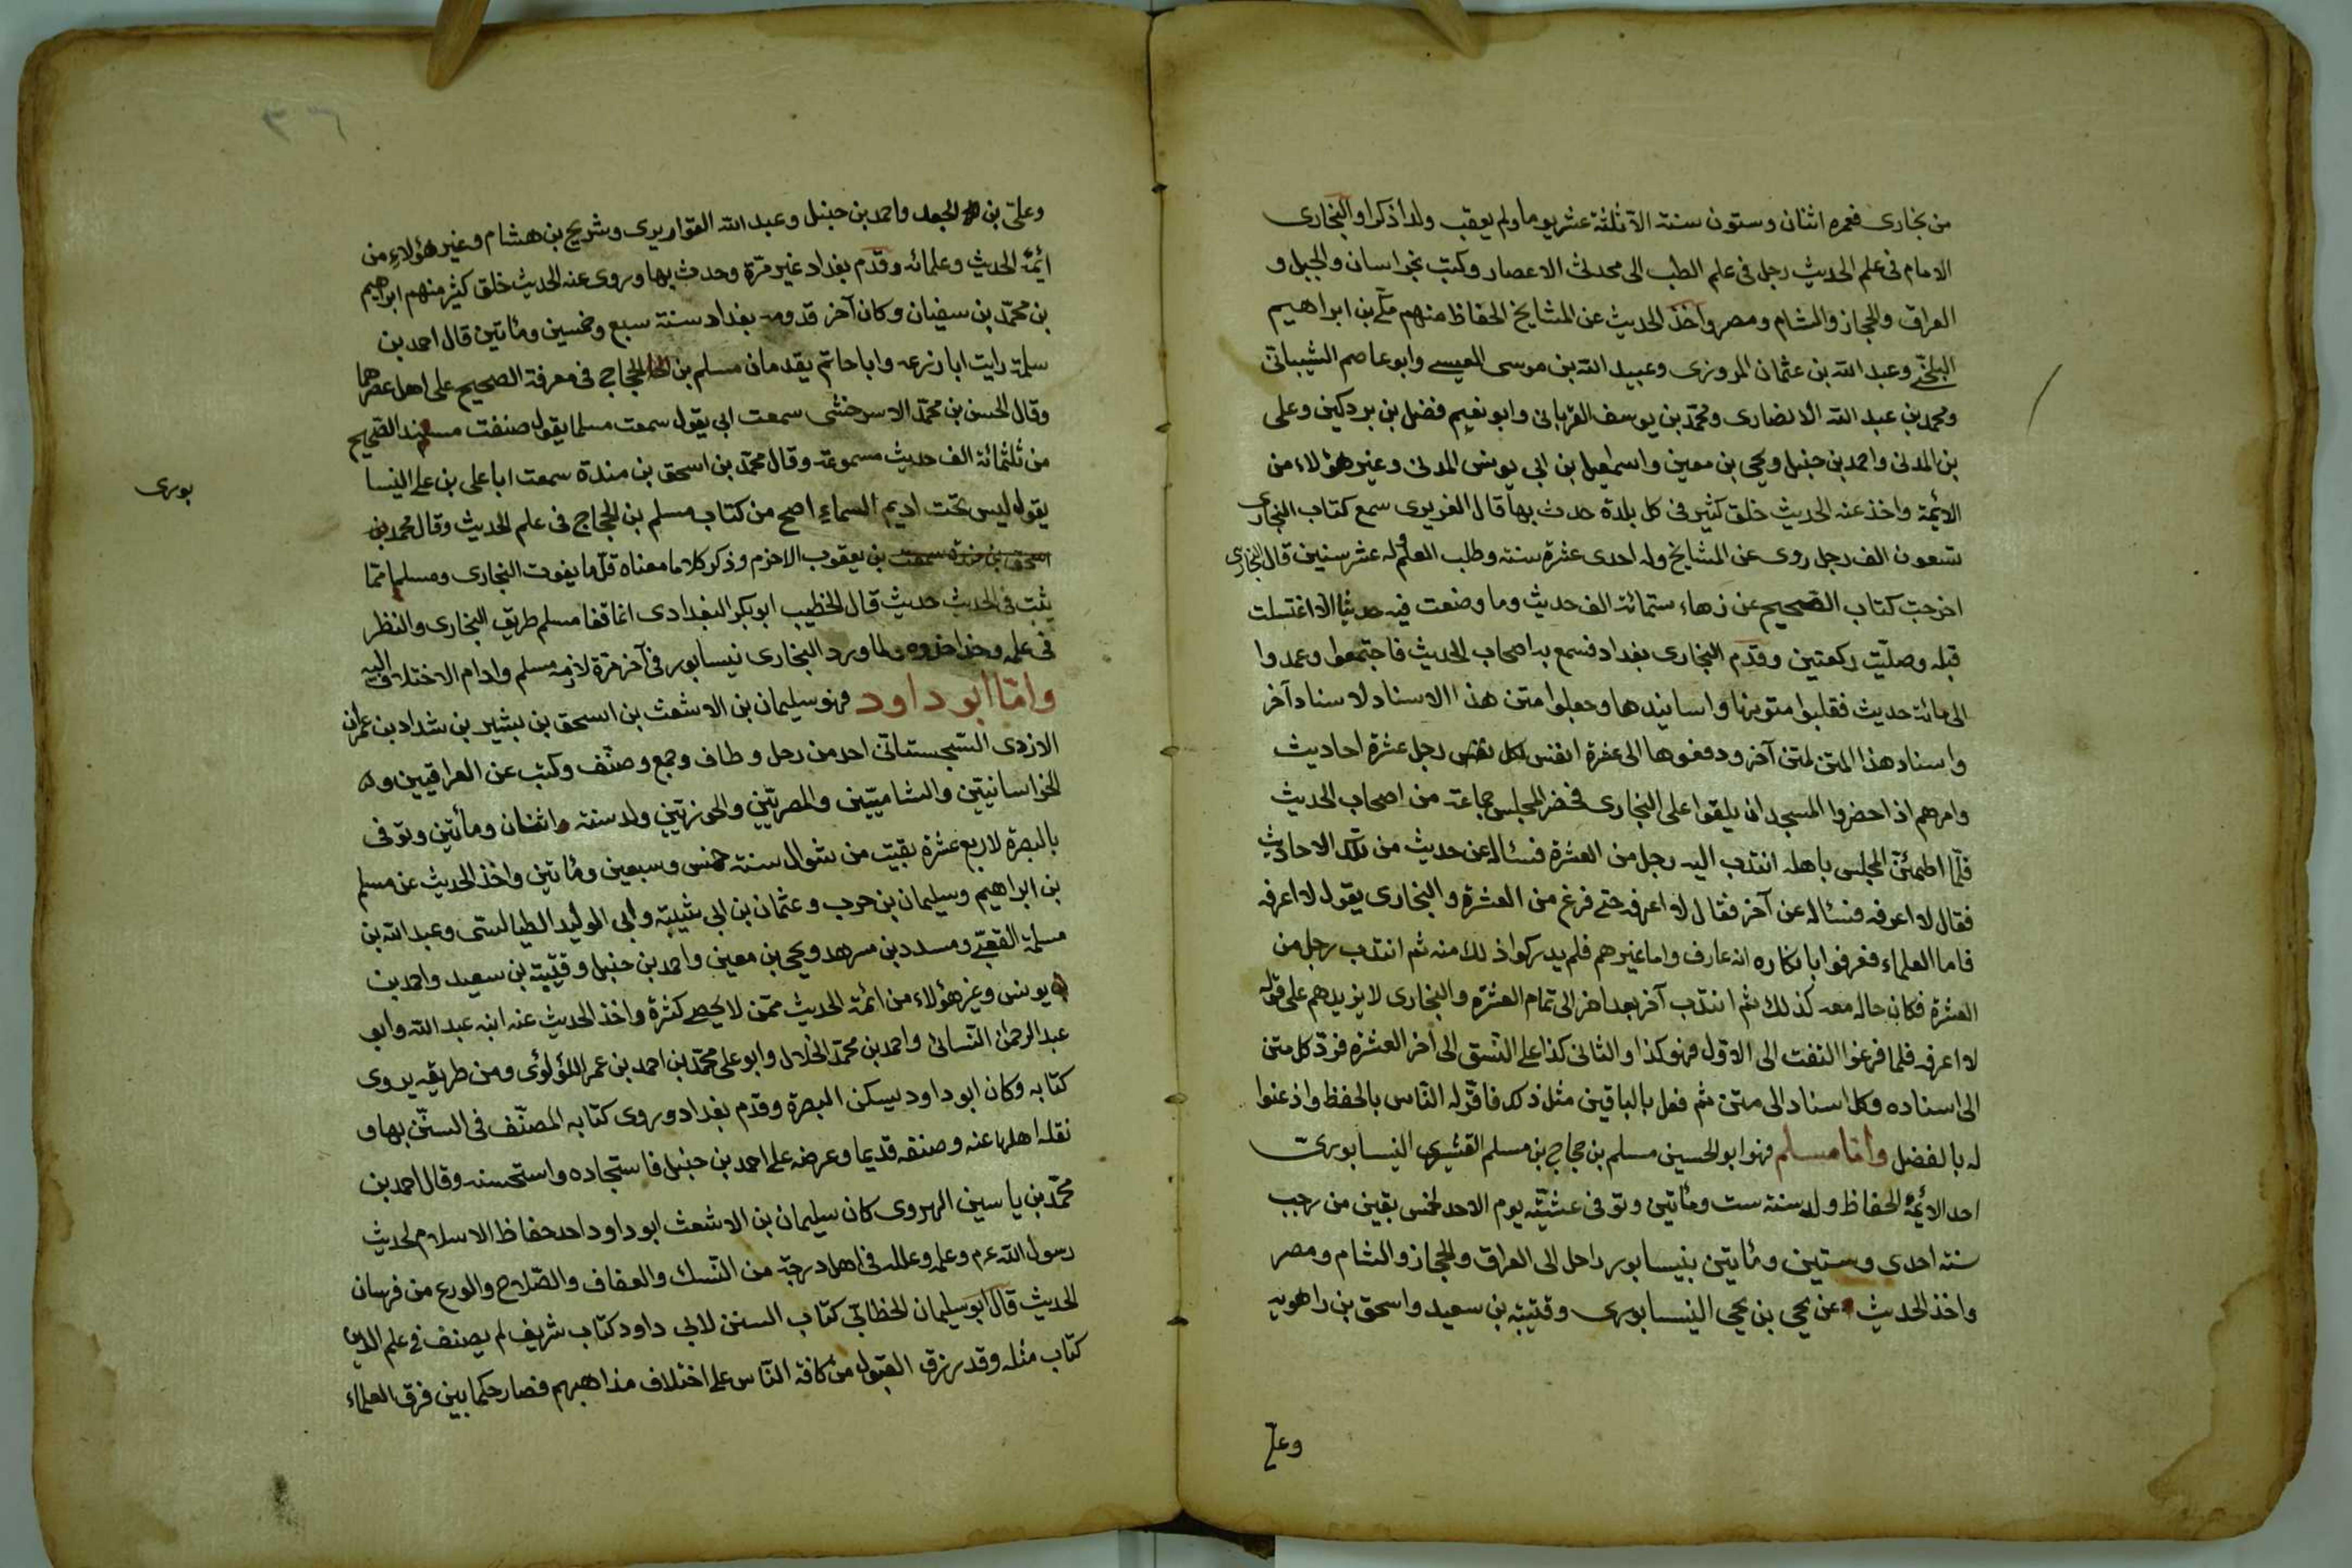 من بخارى فعمره اثنان وستون سنة الا ثلثة عشر يوما ولم يعقب ولدا ذكرا والبخارى
الامام فى علم الحديث رجل فى علم الطب الى محدثى الاعصار وكتب بخراسان والجبل و
العراق والحجاز والشام ومصر واخذ الحديث عن المشايخ الحفاظ منهم مكّے بن ابراهيم
البلخے وعبد الله بن عثمان المروزى وعبيد الله بن موسى العيسے وابو عاصم الشيبانىّ
ومحمد بن عبد الله الانصارى ومحمّد بن يوسف الفريابى وابو نعيم فضل بن بردكين وعلى
بن المدنى واحمد بن حنبل ويحيى بن معين واسمعيل بن ابى يونس المدنى وغير هؤلاء من
الائمة واخذ عنه الحديث خلق كثير فى كل بلدة حدث بها قال الفريرى سمع كتاب البخارى
تسعون الف رجل روى عن المشايخ وله احدى عشرة سنة وطلب العلم وله عشر سنين قال البخارى
اخرجت كتاب الصحيح عن زهاء ستمائة الف حديث وما وضعت فيه حديثا الا اغتسلت
قبله وصلّيت ركعتين وقدم البخارى بغداد فسمع به اصحاب الحديث فاجتمعوا وعمدوا
الى مائة حديث فقلبوا متونها واسانيدها وجعلوا متن هذا الاسناد لاسناد آخر
واسناد هذا المتن لمتن آخر ودفعوها الى عشرة انفس لكل نفس رجل عشرة احاديث
وامرهم اذا حضروا المسجد ان يلقوا على البخارى فحضر المجلس جماعة من اصحاب الحديث
فلمّا اطمئنّ المجلس باهله انتدب اليه رجل من العشرة فسئاله عن حديث من تلك الاحاديث
فقال لا اعرفه فسئاله عن آخر فقال لا اعرفه حتے فرغ من العشرة والبخارى يقول لا اعرفه
فاما العلماء فعرفوا بانكاره انه عارف واما غيرهم فلم يدركوا ذلك منه ثم انتدب رجل من
العشرة فكان حاله معه كذلك ثم انتدب آخر بعد اخر الى تمام العشرة والبخارى لا يزيدهم على قوله
لا اعرفه فلما فرغوا التفت الى الاوّل فهو كذا والثانى كذا علے النسق الى آخر العشرة فردّ كل متن
الى اسناده وكل اسناد الى متن ثم فعل بالباقين مثل ذلك فاقرّ له النّاس بالحفظ واذعنوا
له بالفضل وامّا مسلم فهو ابو الحسين مسلم بن حجاج بن مسلم القشيرى النيسابورىّ
احد الائمّة الحفاظ ولد سنة ست ومأتين وتوفى عشيّة يوم الاحد لخمس بقين من رجب
سنة احدى وستين ومأتين بنيسابور راحل الى العراق والحجاز والشام ومصر
واخذ الحديث عن يحيى بن يحيى النيسابورى وقتيبة بن سعيد واسحق بن راهويه
وعلے
٣٦
وعلىّ بن الجعد واحمد بن حنبل وعبد الله القواريرى وشريح بن هشام وغير هؤلاء من
ائمّة الحديث وعلمائه وقدم بغداد غير مرّة وحدث بها وروى عنه الحديث خلق كثير منهم ابراهيم
بن محمّد بن سفيان وكان آخر قدومه بغداد سنة سبع وخمسين ومأتين قال احمد بن
سلمة رايت ابا زرعة وابا حاتم يقدمان مسلم بن الحجاج فى معرفة الصحيح على اهل عصرهما
وقال الحسن بن محمّد الاسرخشى سمعت ابى يقول سمعت مسلما يقول صنفت مسند الصّحيح
من ثلثمائة الف حديث مسموعة وقال محمّد بن اسحق بن مندة سمعت ابا على بن علے النيسا
بورى
يقول ليس تحت اديم السماء اصح من كتاب مسلم بن الحجاج فى علم الحديث وقال محمد بن
اسحق بن مندة سمعت بن يعقوب الاخرم وذكر كلاما معناه قلّ ما يفوت البخارى ومسلما ممّا
يثبت فى الحديث حديث قال الخطيب ابو بكر البغدادى انما قفا مسلم طريق البخارى والنظر
فى علمه وحذا حذوه ولما ورد البخارى نيسابور فى آخر مرّة لازمه مسلم وادام الاختلاف اليه
وامّا ابو داود فهو سليمان بن الاشعث بن اسحق بن بشير بن شداد بن عمران
الازدى السّجستانىّ احد من رحل وطاف وجمع وصنّف وكتب عن العراقيين و
الخراسانيّين والشاميّين والمصريّين والجزريّين ولد سنة اثنان ومأتين وتوفى
بالبصرة لاربع عشرة بقيت من شوال سنة خمس وسبعين ومأتين واخذ الحديث عن مسلم
بن ابراهيم وسليمان بن حرب وعثمان بن ابى شيبة وابى الوليد الطيالسى وعبد الله بن
مسلمة القعبے ومسدد بن مسرهد ويحيى بن معين واحمد بن حنبل وقتيبة بن سعيد واحمد بن
يونس وغير هؤلاء من ائمة الحديث ممّن لا يحصے كثرة واخذ الحديث عنه ابنه عبد الله وابو
عبد الرحمن النّسائى واحمد بن محمّد الخلال وابو على محمّد بن احمد بن عمر اللؤلوئى ومن طريقه يروى
كتابه وكان ابو داود يسكن البصرة وقدم بغداد وروى كتابه المصنّف فى السنّن بها و
نقله اهلها عنه وصنفه قديما وعرضه علے احمد بن حنبل فاستجاده واستحسنه وقال احمد بن
محمّد بن ياسين الهروى كان سليمان بن الاشعث ابو داود احد حفاظ الاسلام لحديث
رسول الله عم وعلمه وعلله فى اهل درجة من النّسك والعفاف والصّلاح والورع من فرسان
الحديث قال ابو سليمان الخطابىّ كتاب السنن لابى داود كتاب شريف لم يصنف فے علم الدين
كتاب مثله وقد رزق القبول من كافة النّاس علے اختلاف مذاهبهم فصار حكما بين فرق العلماء